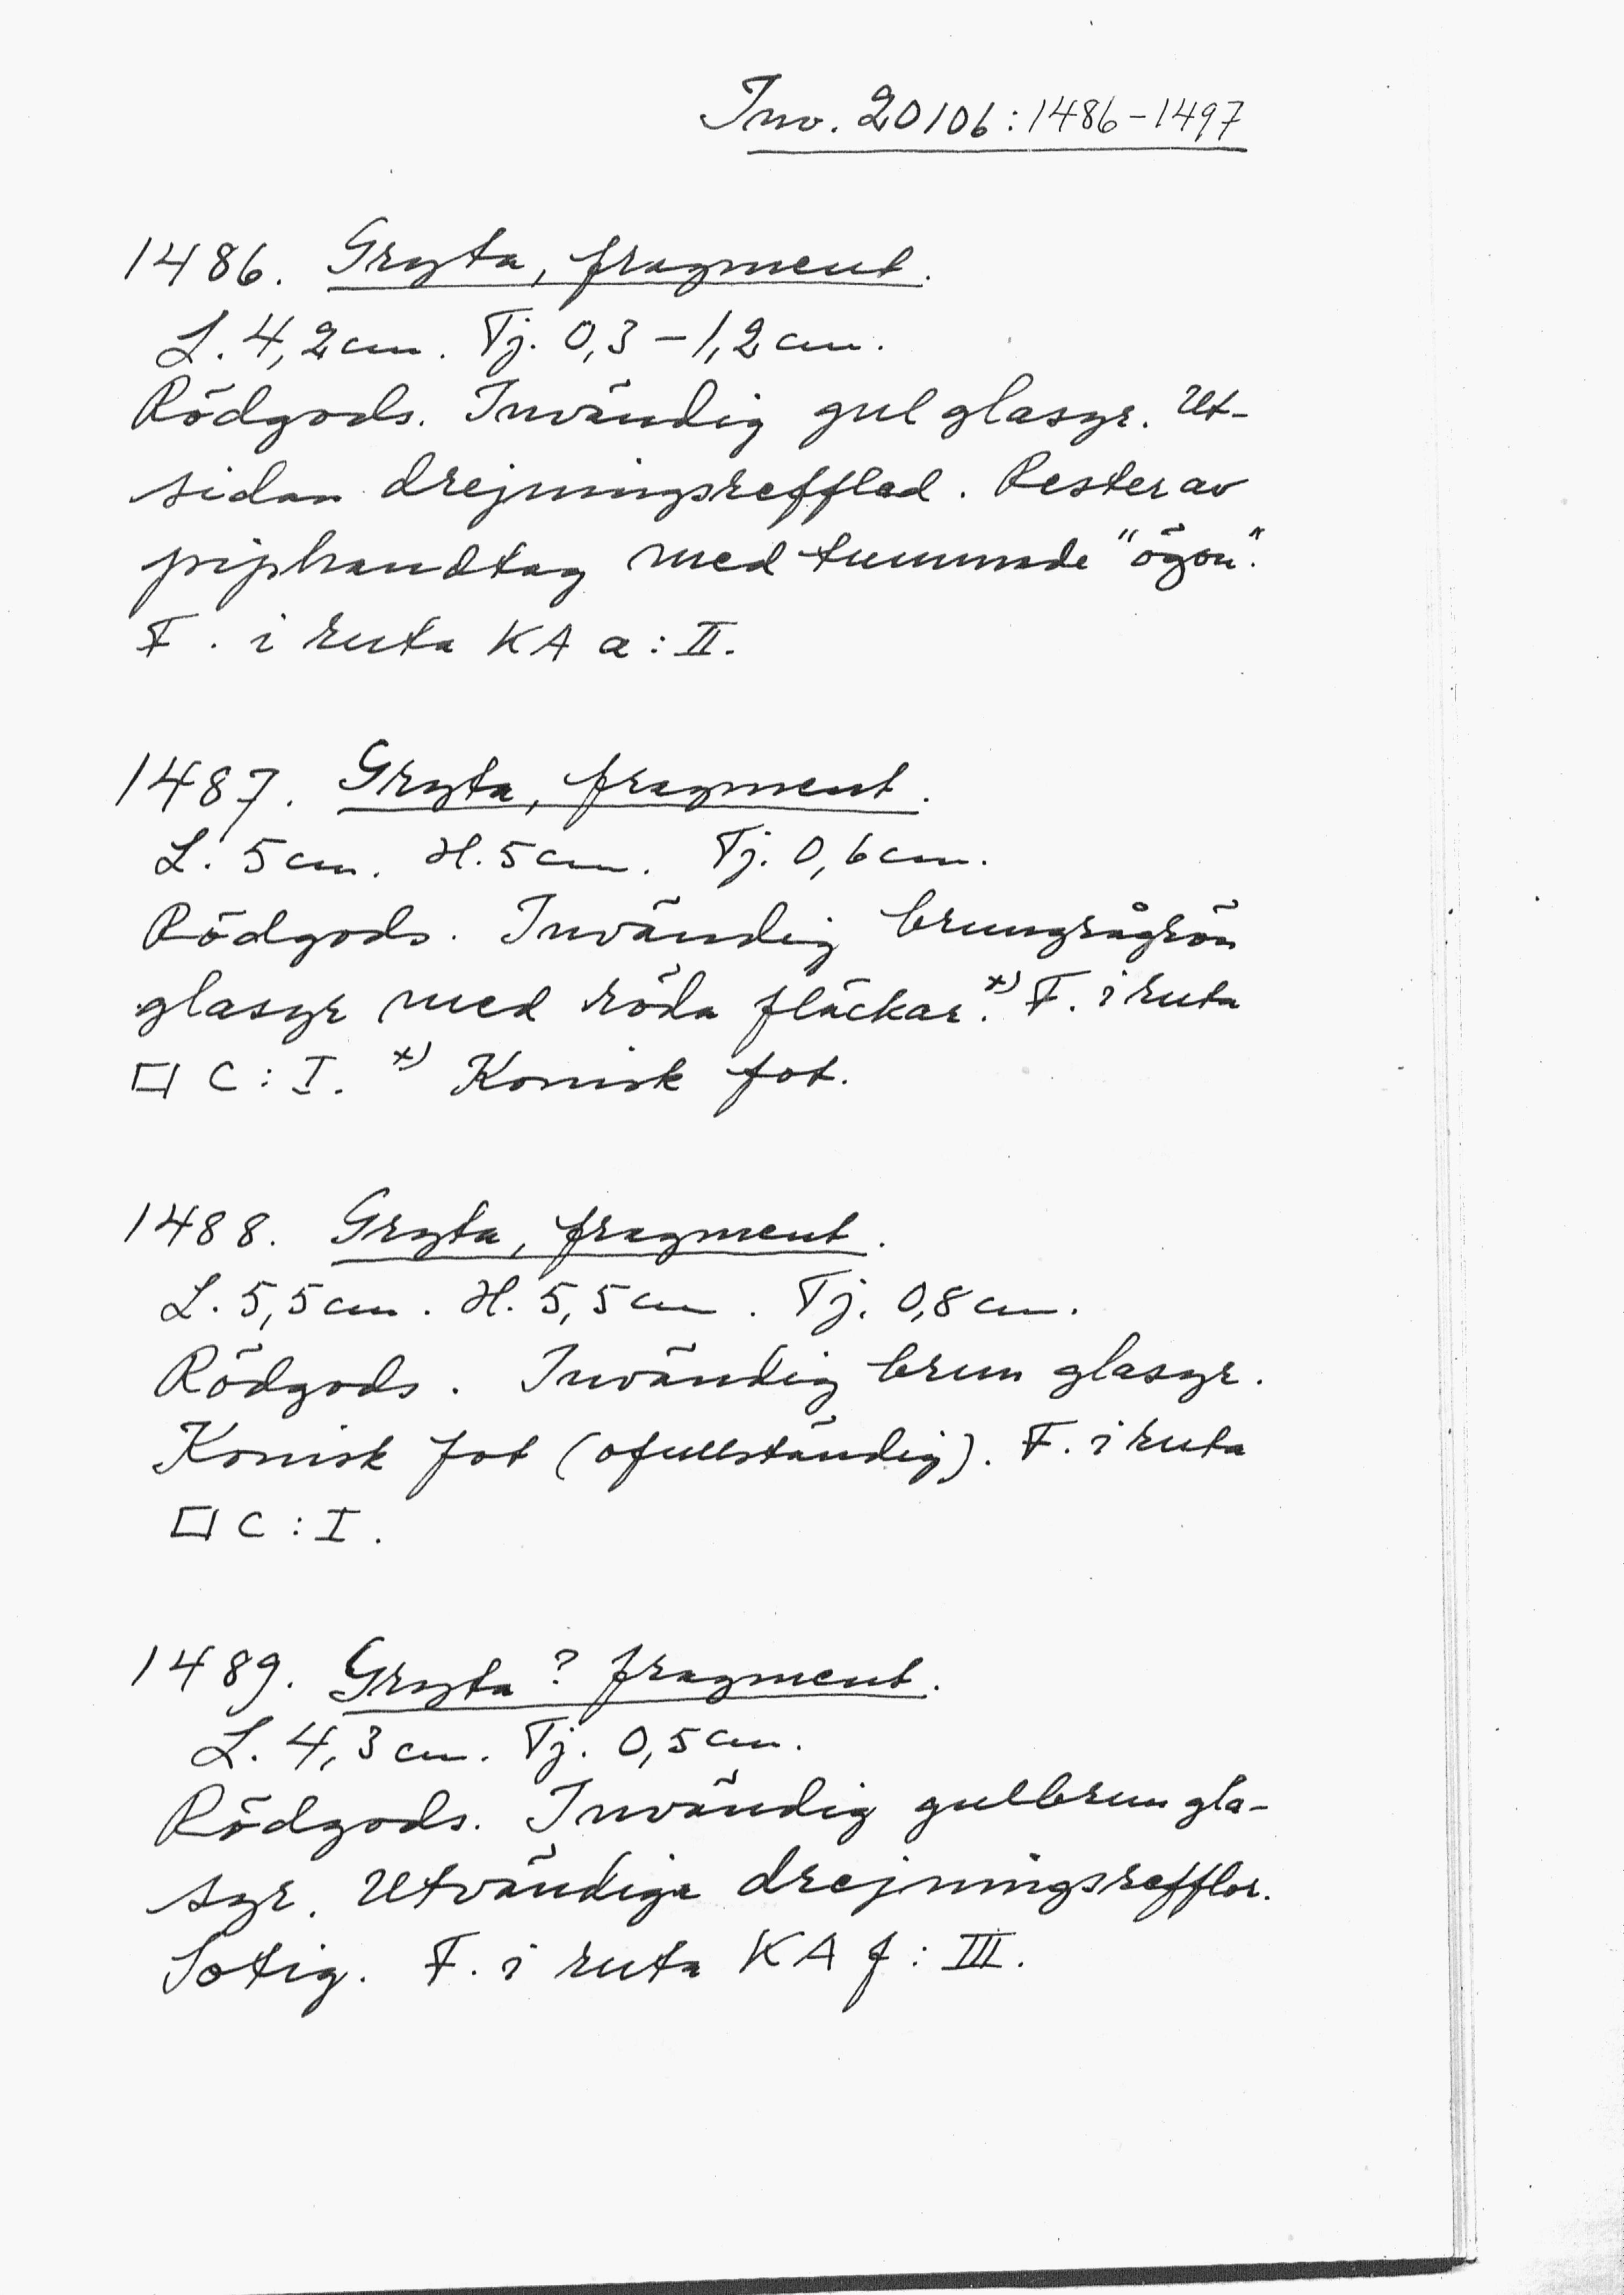 Inv. 20106:1486-1497
1486. Gryta, fragment.
L. 4,2 cm. Tj. 0,3-1,2 cm.
Rödgods. Invändig gul glasyr. Ut-
sidan drejningsrefflad. Rester av
piphandtag med tummade "ögon".
F. i ruta KA a:II.
1487. Gryta, fragment.
L. 5 cm. H. 5 cm. Tj. 0,6 cm.
Rödgods. Invändig brungrågrön
glasyr med röda fläckar.*) F. i ruta
□ C:I. *) Konisk fot.
1488. Gryta, fragment.
L. 5,5 cm. H. 5,5 cm. Tj. 0,8 cm.
Rödgods. Invändig brun glasyr.
Konisk fot (ofullständig). F. i ruta
□ C:I.
1489. Gryta? fragment.
L. 4,3 cm. Tj. 0,5 cm.
Rödgods. Invändig gulbrun gla-
syr. Utvändiga drejningsrefflor.
Sotig. F. i ruta KA f:III.